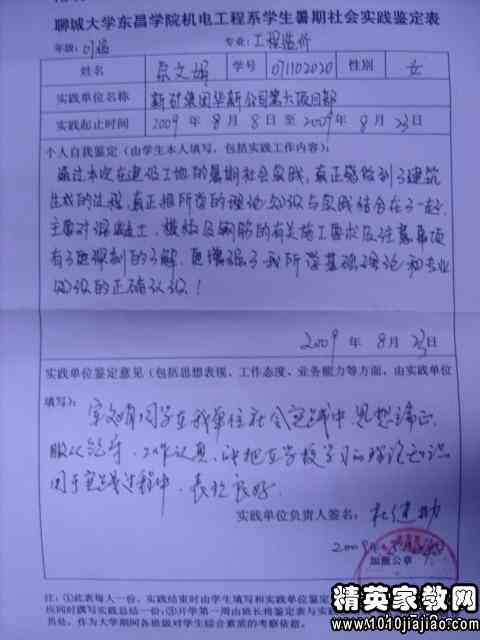 聊城大学东昌学院机电工程系学生暑期社会实践鉴定表
年级: 07级 专业: 工程造价
姓名 文娟 学号 071102020 性别 女
实践单位名称 新矿集团华新公司第六项目部
实践起止时间 2009 年 8 月 8 日 至 2009 年 8 月 23 日
个人自我鉴定（由学生本人填写，包括实践工作内容）：
通过本次在建设工地的暑期社会实践，真正感触到了建筑
生成的过程，真正把所学的理论知识与实践结合在了一起，
主要对混凝土、模板及钢筋的有关施工要求及注意事项
有了更深刻的了解，更增强了我所学基础理论和专业
知识的正确认识！
2009 年 8 月 23 日
实践单位鉴定意见（包括思想表现、工作态度、业务能力等方面，由实践单位
填写）：
文娟同学在我单位社会实践中，思想端正，
服从领导，工作认真，能把在学校学习的理论知识
用于实践过程中，表现良好。
实践单位负责人签名：
2009年
加盖公章
注：①此表每人一份，实践结束时由学生填写和实践单位鉴定
应同时撰写实践总结一份；③开学第一周由班长将鉴定表与实践
员处，作为大学期间各班级对学生综合素质的考察依据。
精英家教网
www.1010jiajiao.com